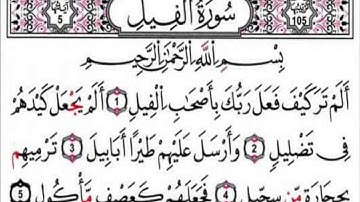 سُورَةُ الْفِيلِ
بِسْمِ اللَّهِ الرَّحْمَٰنِ الرَّحِيمِ
أَلَمْ تَرَ كَيْفَ فَعَلَ رَبُّكَ بِأَصْحَابِ الْفِيلِ ۝1 أَلَمْ يَجْعَلْ كَيْدَهُمْ
فِي تَضْلِيلٍ ۝2 وَأَرْسَلَ عَلَيْهِمْ طَيْرًا أَبَابِيلَ ۝3 تَرْمِيهِم
بِحِجَارَةٍ مِّن سِجِّيلٍ ۝4 فَجَعَلَهُمْ كَعَصْفٍ مَّأْكُولٍ ۝5